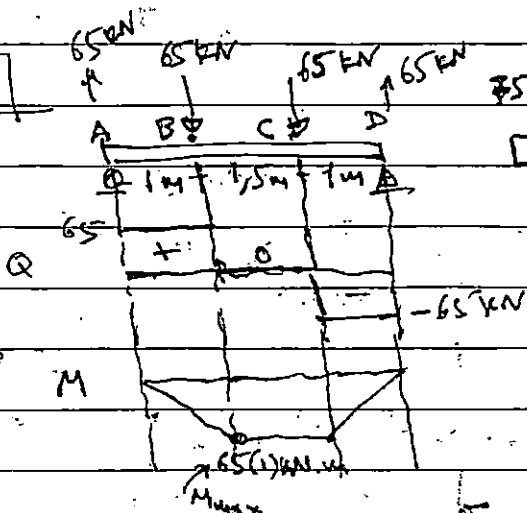 65kN 65 kN 65 kN 65 kN
A B C D
1m 1,5m 1m
65
+ 0 −
Q
-65 kN
M
65(1) kN.m
Mmax